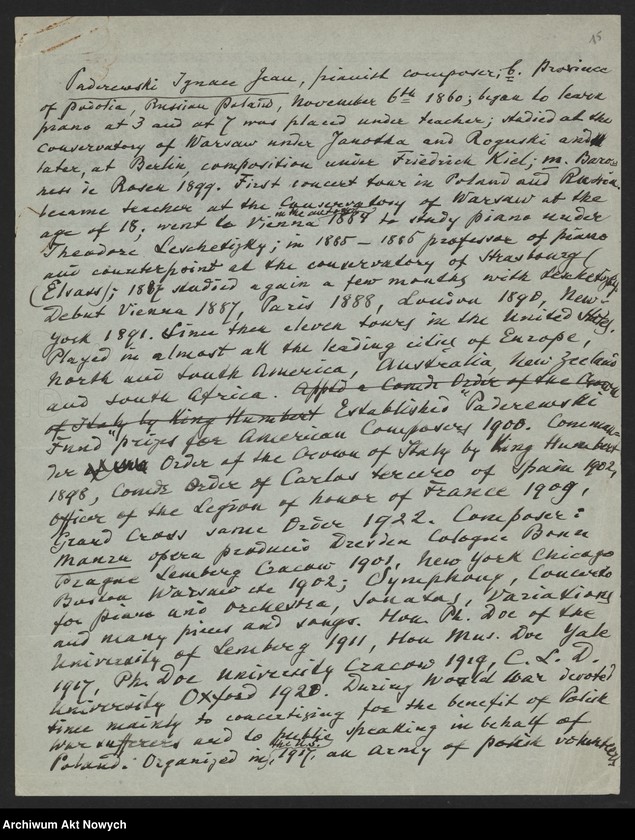 15
Paderewski Ignace Jean, pianist composer; b. Province
of Podolia, Russian Poland, November 6th 1860; began to learn
piano at 3 and at 7 was placed under teacher; studied at the
conservatory of Warsaw under Janotha and Roguski and
later, at Berlin, composition under Friedrich Kiel; m. Baro-
ness de Rosen 1899. First concert tour in Poland and Russia.
became teacher at the Conservatory of Warsaw at the
age of 18; went to Vienna in the autumn 1884 to study piano under
Theodore Leschetizky; in 1885 – 1886 professor of piano
and counterpoint at the conservatory of Strasbourg
(Elsass); 1887 studied again a few months with Leschetizky.
Debut Vienna 1887, Paris 1888, London 1890, New-
York 1891. Since then eleven tours in the United States.
Played in almost all the leading cities of Europe,
North and South America, Australia, New Zeeland
and South Africa. Appt'd a Comdr Order of the Crown
of Italy by King Humbert Established "Paderewski
Fund" prizes for American Composers 1900. Comman-
der Order of the Crown of Italy by King Humbert
1898, Comdr Order of Carlos tercero of Spain 1902,
officer of the Legion of honor of France 1909,
Grand Cross same Order 1922. Composer:
Manru opera produced Dresden Cologne Bonn
Prague Lemberg Cracow 1901, New York Chicago
Boston Warsaw etc 1902; Symphony, Concerto
for piano and orchestra, Sonatas, Variations
and many pieces and songs. Hon. Ph. Doc of the
University of Lemberg 1911, Hon Mus. Doc Yale
1917, Ph. Doc University Cracow 1919, C. L. D.
University Oxford 1920. During World War devoted
time mainly to concertizing for the benefit of Polish
war sufferers and to public speaking in behalf of
Poland. Organized in the U.S. 1917, an army of polish volunteers
Archiwum Akt Nowych